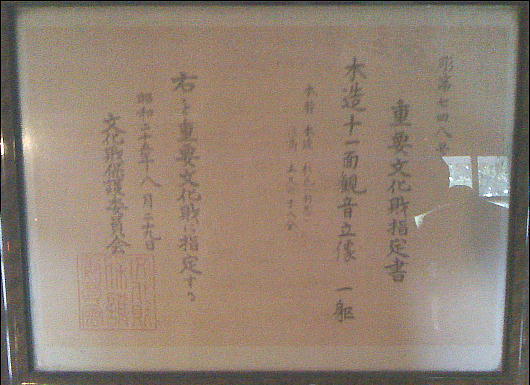 彫第七四八号
重要文化財指定書
木造十一面観音立像 一軀
右を重要文化財に指定する
昭和二十五年八月二十九日
文化財保護委員会